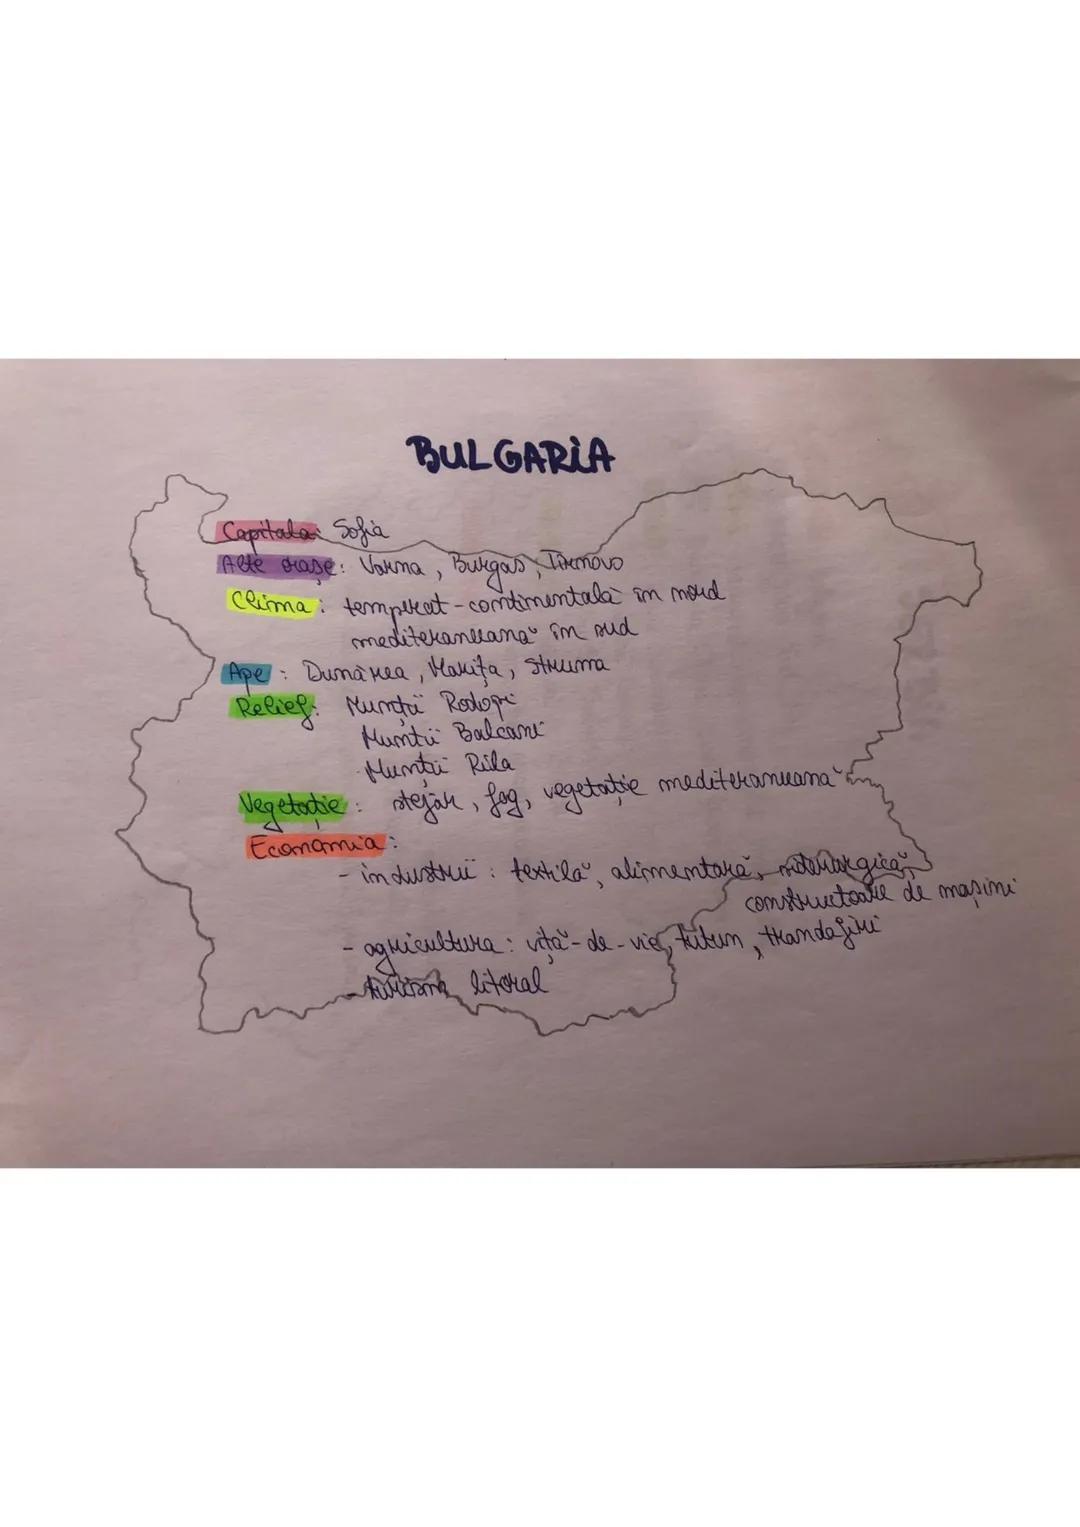 BULGARIA
Capitala: Sofia
Alte orașe: Varna, Burgas, Tîrnovo
Clima: temperat-continentală în nord
mediteraneeană în sud
Ape: Dunărea, Marița, Struma
Relief: Munții Rodopi
Munții Balcani
Munții Rila
Vegetație: stejar, fag, vegetație mediteraneeană
Economia:
- industrii: textilă, alimentară, siderurgică,
constructoare de mașini
- agricultura: viță-de-vie, tutun, trandafiri
- turism litoral